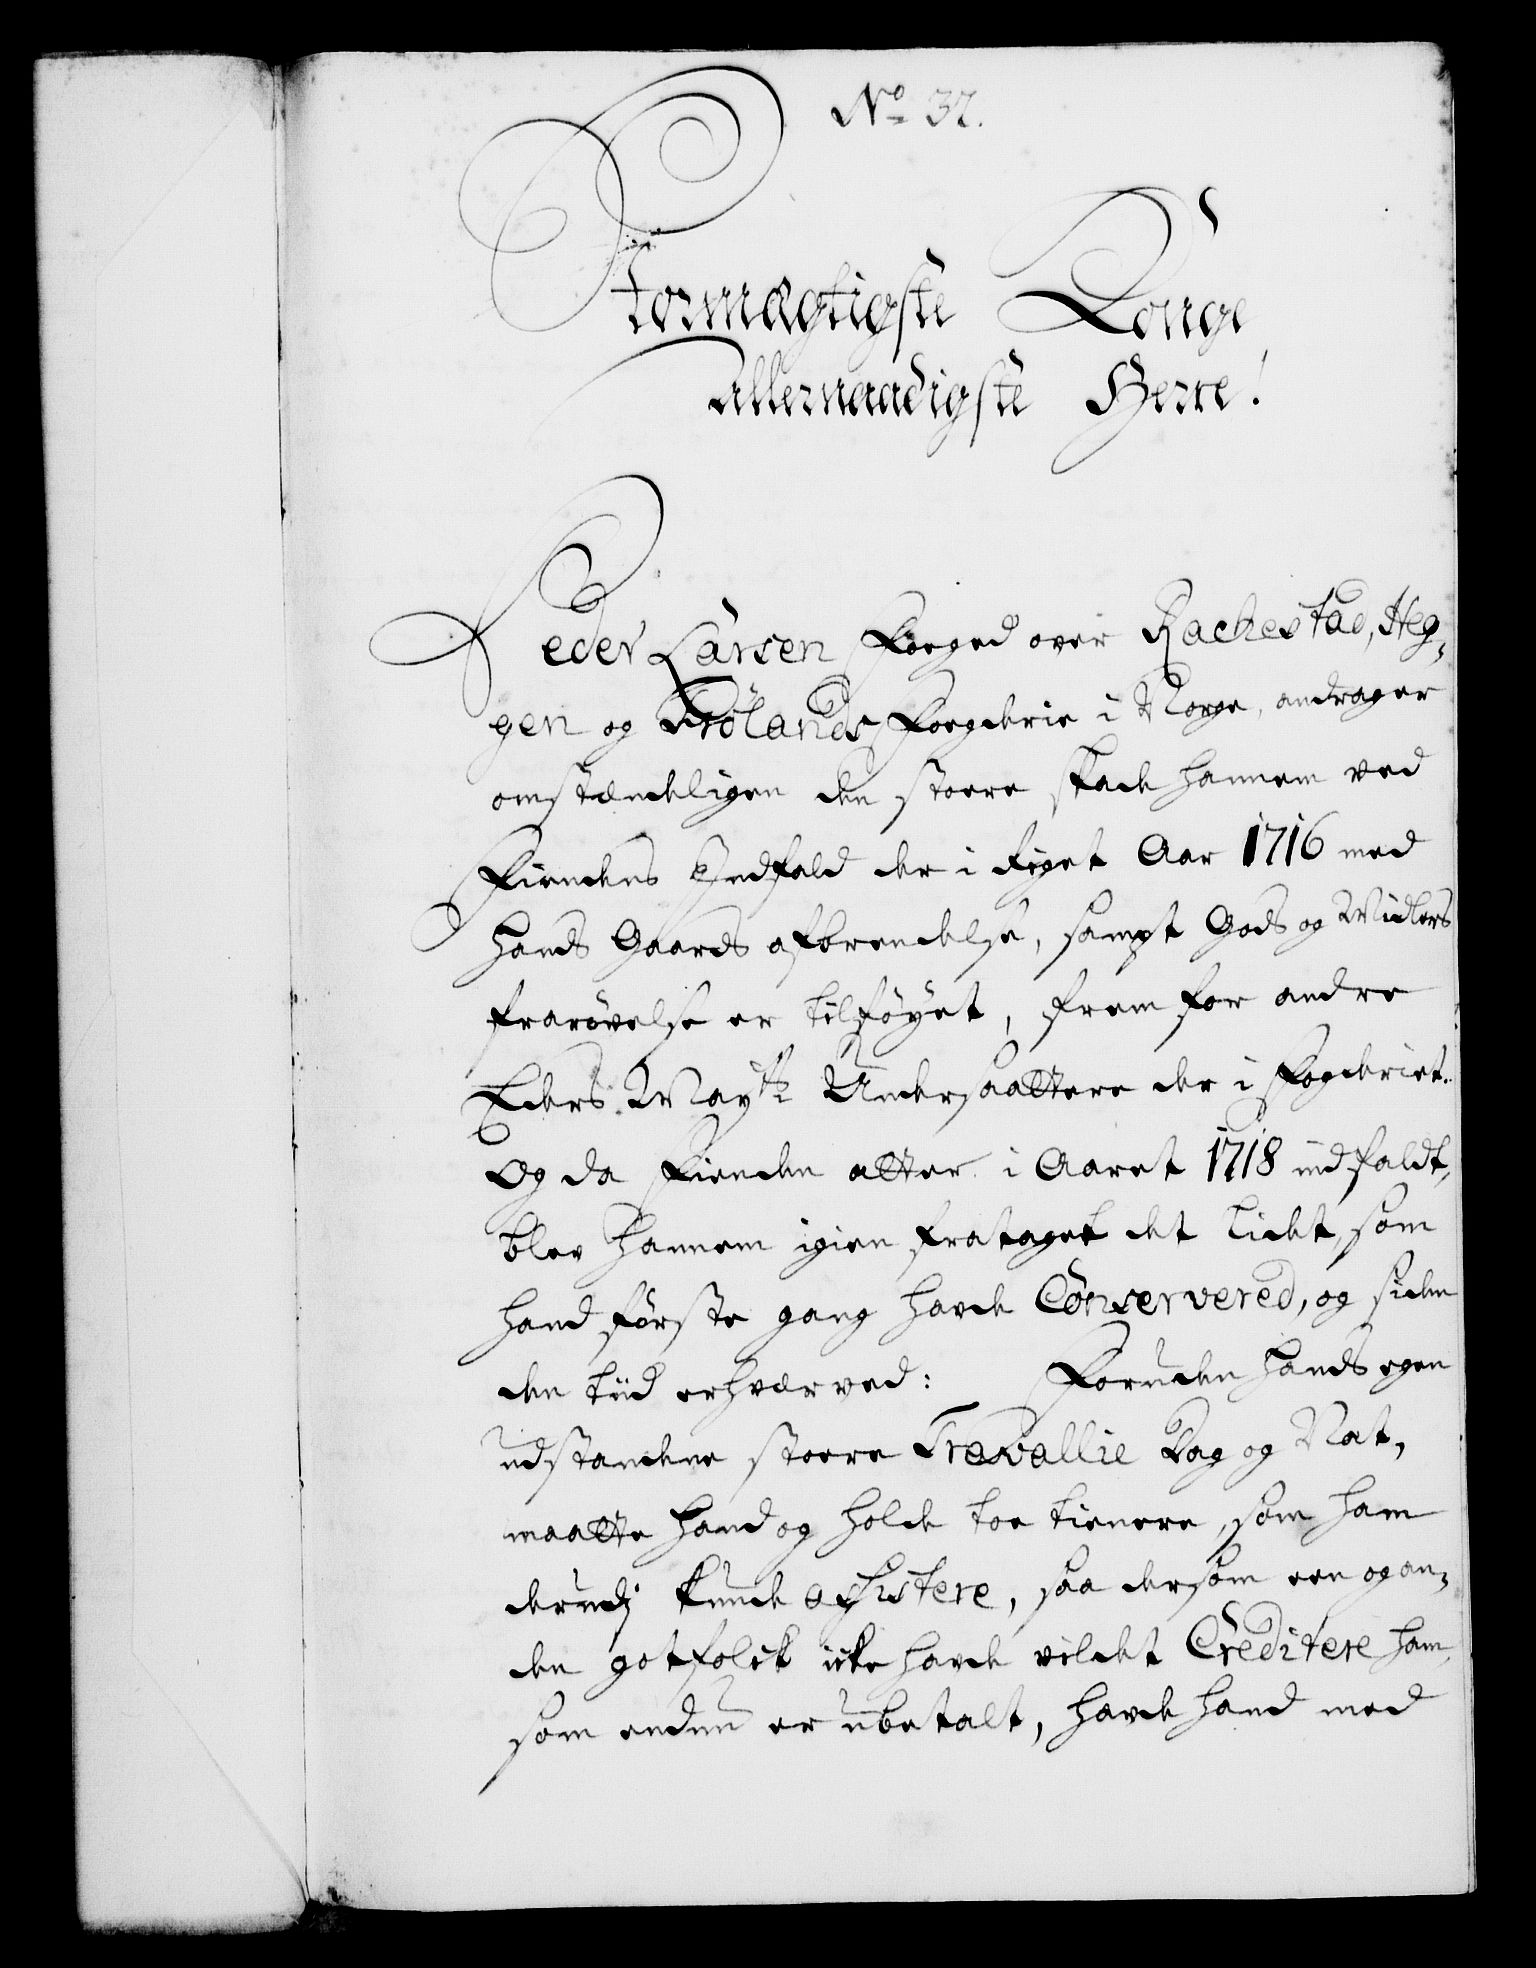 No 37.
Stormægtigste Konge
Allernaadigste Herre!
Peder Larsen Foeged over Rachestad, Heg-
gen og Frølands Foegderie i Norge, andrager
omstændeligen den stoere skade hannem ved
Fiendens Indfald der i Riget Aar 1716 med
hands Gaards afbrendelse, sampt Gods og Midlers
frarøvelse er tilføyet, frem for andre
Eders Mayts Undersaattere der i Fogderiet.
Og da Fienden atter i Aaret 1718 indfaldt,
blev hannem igien frataget det lidet, som
hand første gang havde Conservered, og siden
den tiid erhværved: Foruden hands egen
udstandene stoere Travallie Dag og Nat,
maatte hand og holde toe tienere, som ham
derudj kunde assistere, saa dersom een og an-
den got folk icke havde vildet Creditere ham,
som endnu er ubetalt, havde hand med